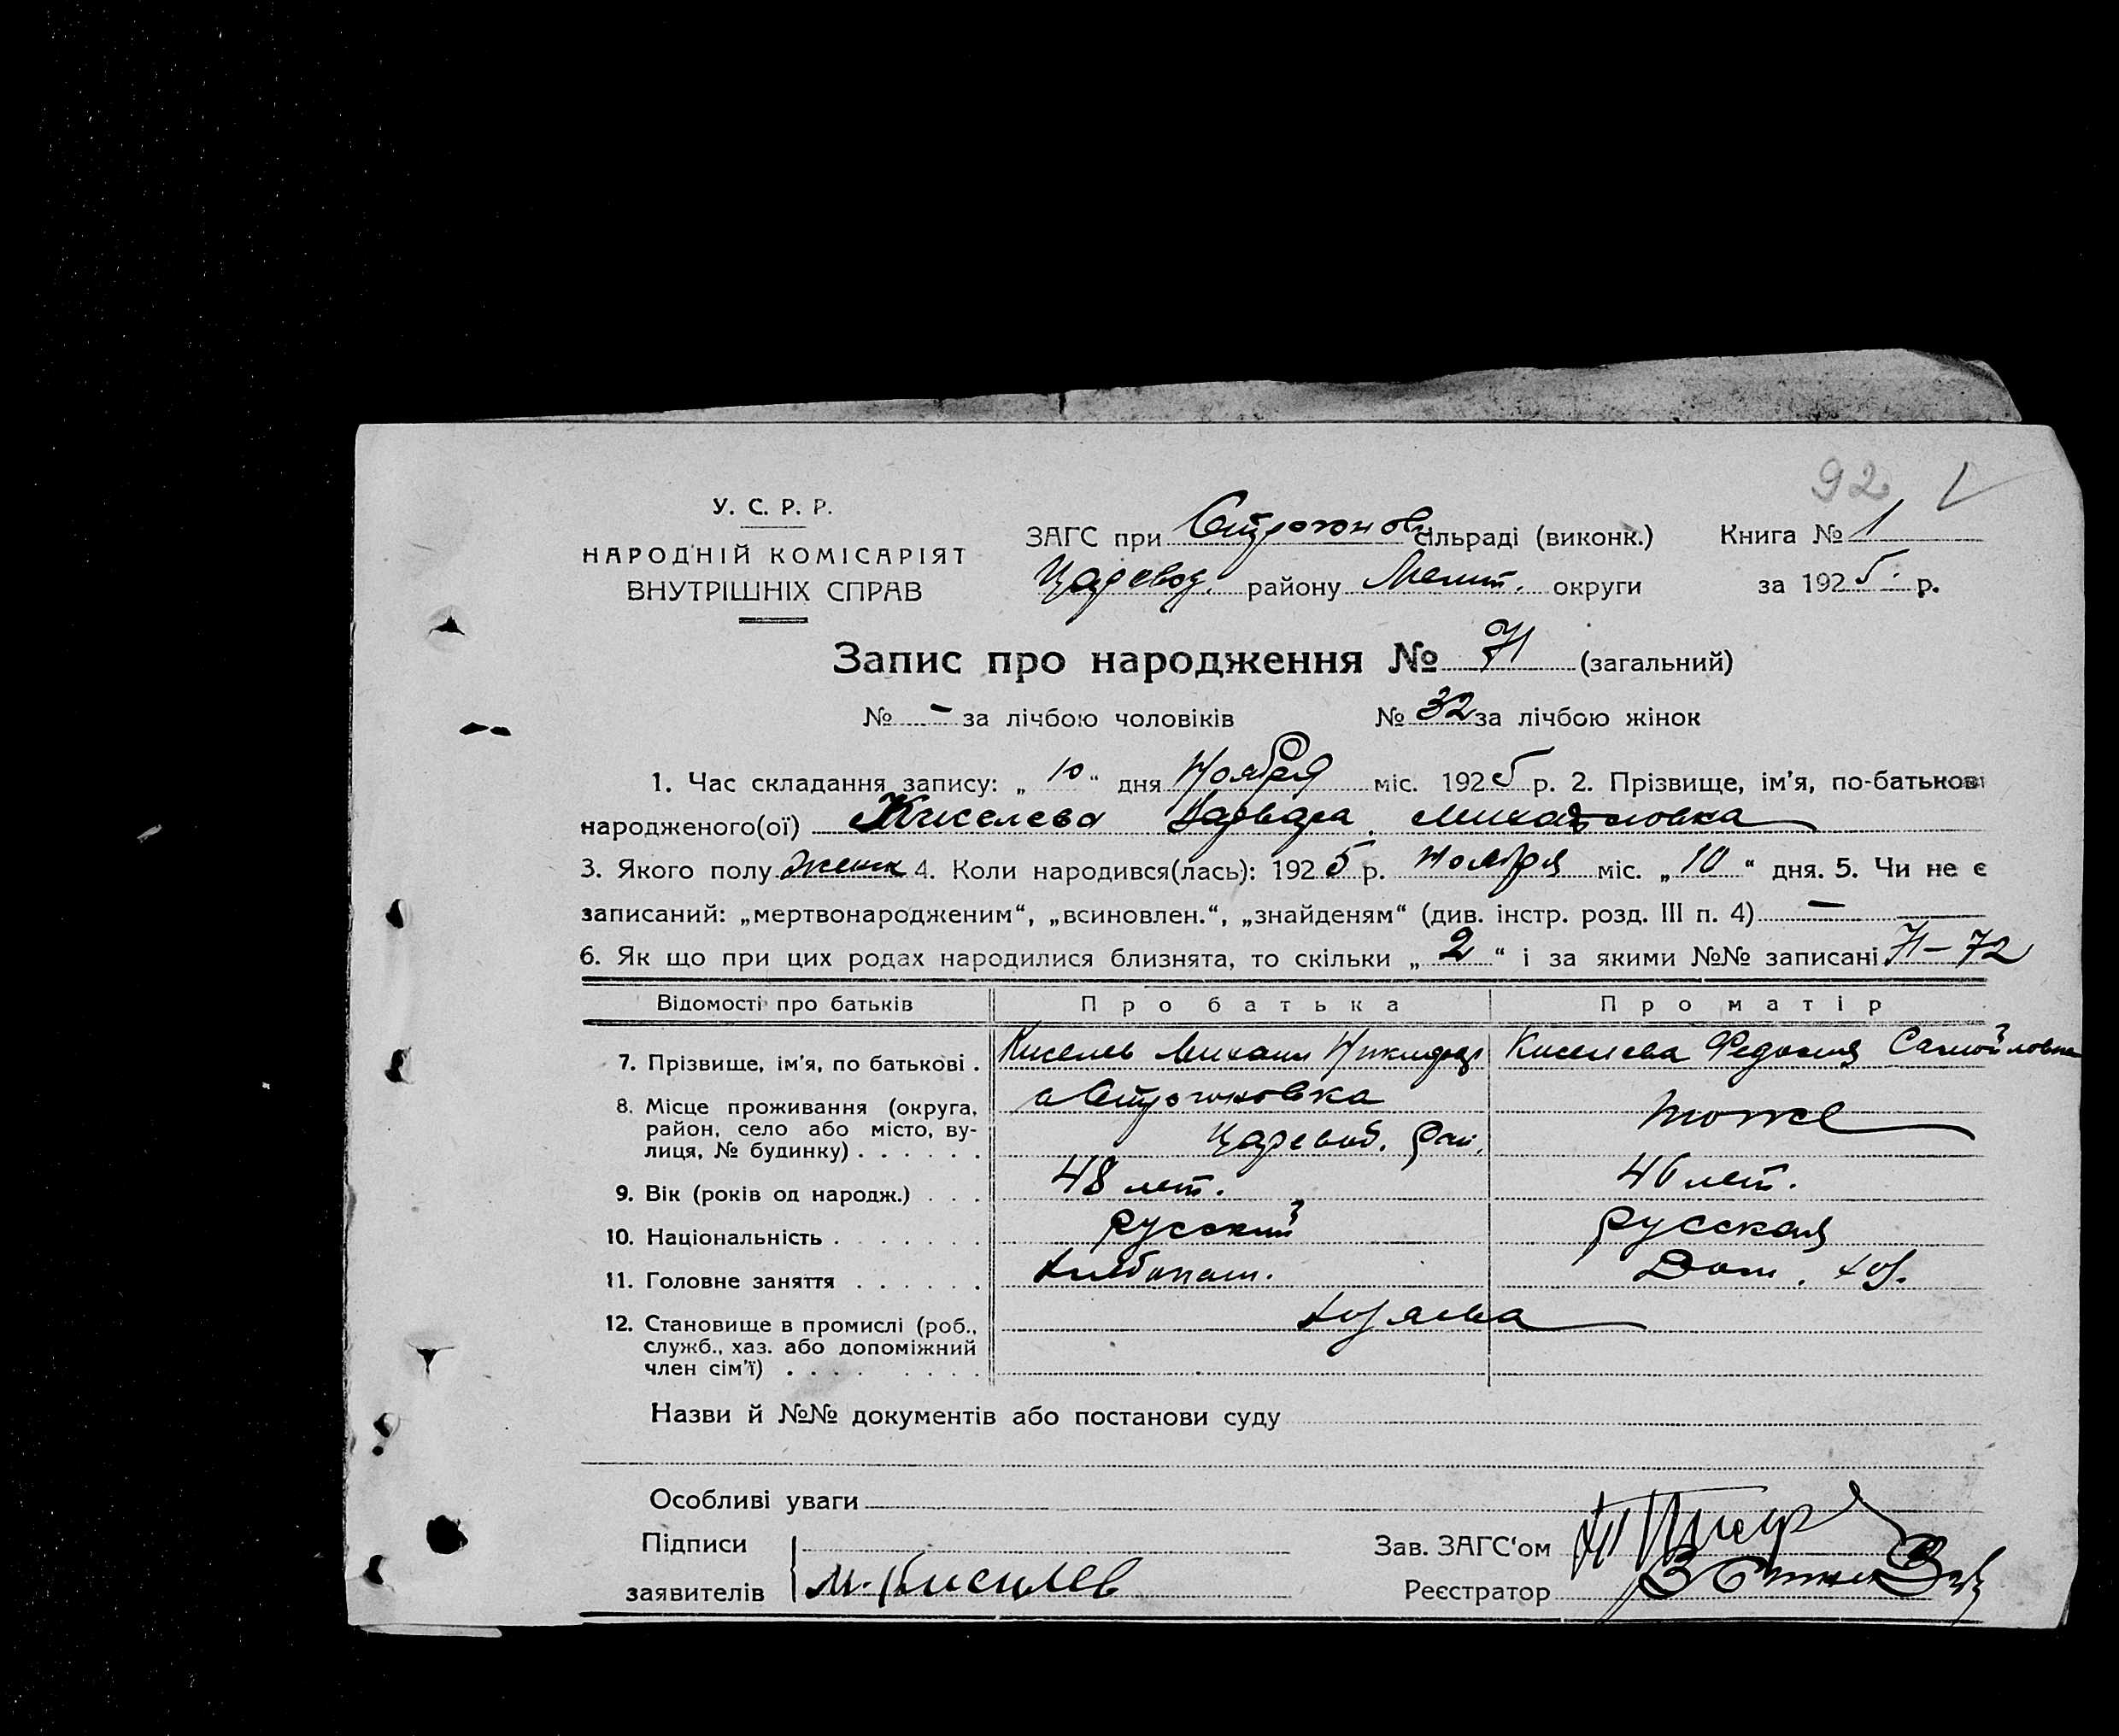 92 V
У. С. Р. Р.
НАРОДНІЙ КОМІСАРІЯТ
ВНУТРІШНІХ СПРАВ
ЗАГС при Строгонов сільраді (виконк.)
Царевод. району Мелит. округи
Книга № 1
за 1925. р.
Запис про народження № 71 (загальний)
№ - за лічбою чоловіків № 32 за лічбою жінок
1. Час складання запису: „10“ дня Ноября міс. 1925 р. 2. Прізвище, ім'я, по-батькові
народженого(ої) Киселева Варвара Михайловна
3. Якого полу женск 4. Коли народився(лась): 1925 р. Ноября міс. „10“ дня. 5. Чи не є
записаний: „мертвонародженим“, „всиновлен.“, „знайденям“ (див. інстр. розд. III п. 4) —
6. Як що при цих родах народилися близнята, то скільки „2“ і за якими №№ записані 71–72
Відомості про батьків Про батька Про матір
7. Прізвище, ім'я, по батькові . Киселев Михаил Никифор Киселева Федосия Самойловна
8. Місце проживання (округа, район, село або місто, вулиця, № будинку) . . . . . .
с Строгоновка
Царевод. рай. тоже
9. Вік (років од народж.) . . . 48 лет. 46 лет.
10. Національність . . . . . . . русский русская
11. Головне заняття . . . . . . хлебопаш. Дом. хоз.
12. Становище в промислі (роб., служб., хаз. або допоміжний член сім'ї) . . . . . . . .
хозяева
Назви й №№ документів або постанови суду
Особливі уваги
Підписи
заявителів М. Киселев
Зав. ЗАГС'ом
Реєстратор